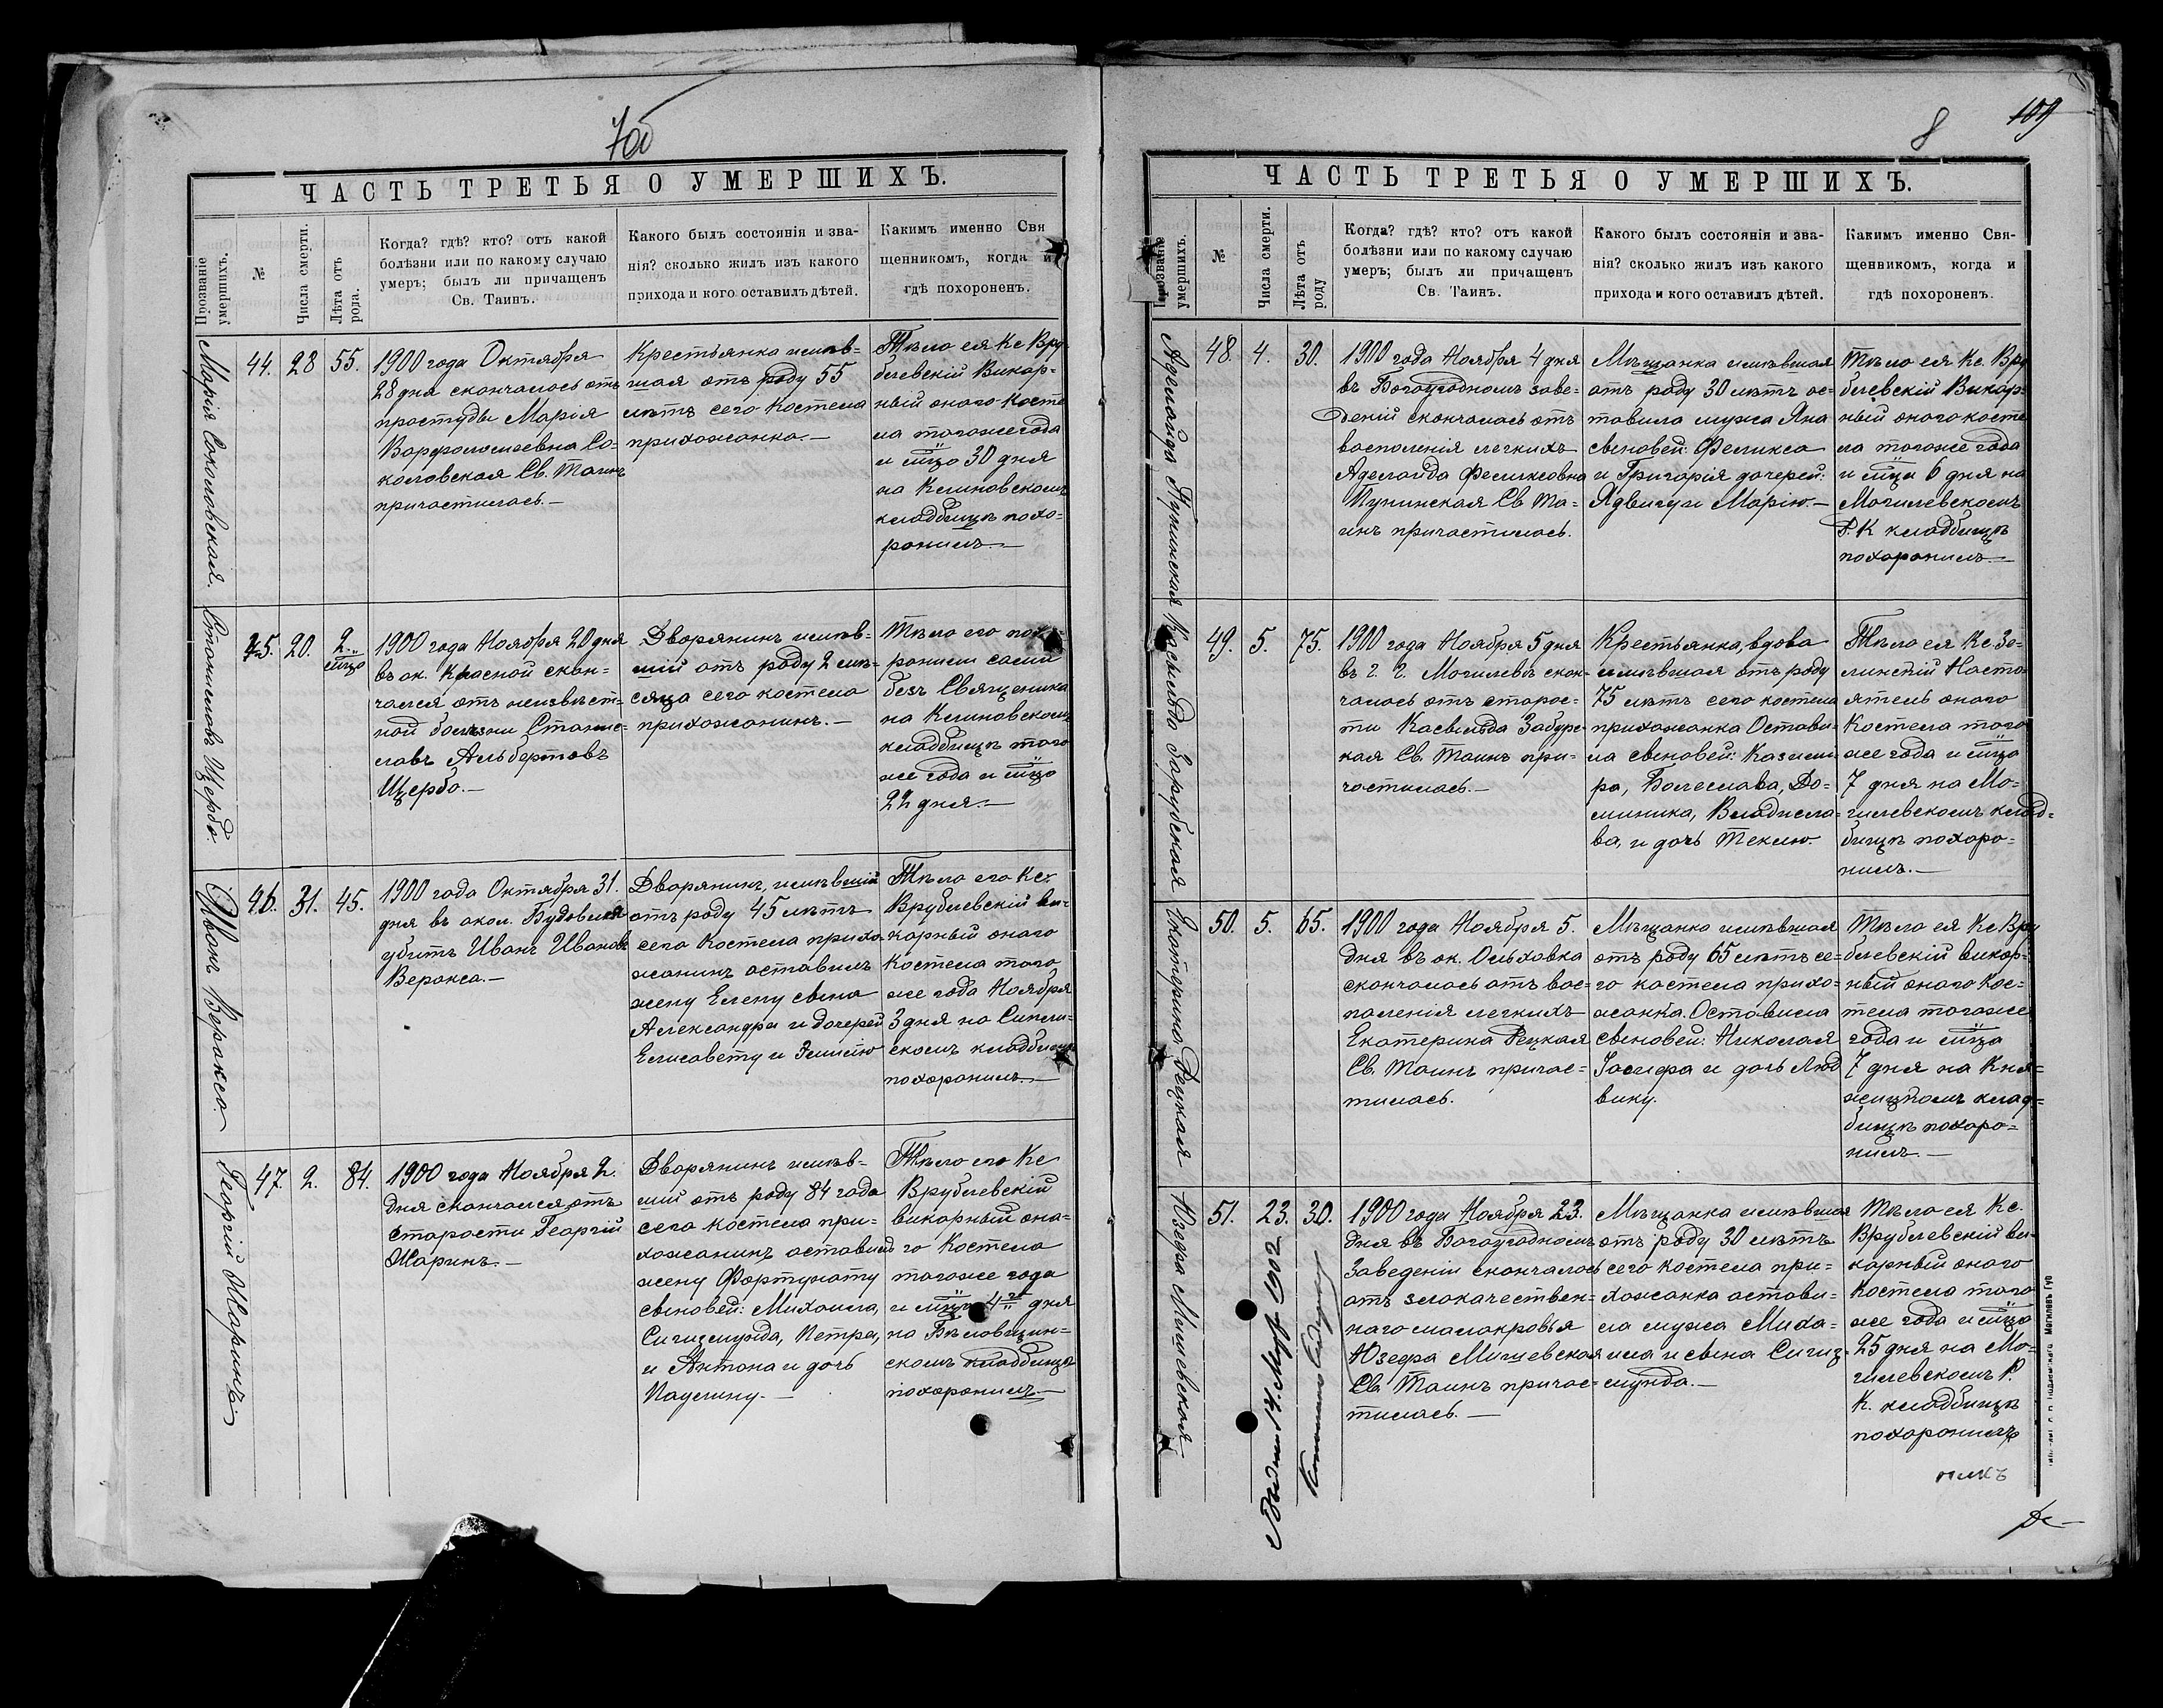 7об
ЧАСТЬ ТРЕТЬЯ О УМЕРШИХЪ.
Прозваніе умершихъ.
№
Числа смерти.
Лѣта отъ рода.
Когда? гдѣ? кто? отъ какой
болѣзни или по какому случаю
умеръ; былъ ли причащенъ
Св. Таинъ.
Какого былъ состоянія и зва-
нія? сколько жилъ изъ какого
прихода и кого оставилъ дѣтей.
Какимъ именно Свя
щенникомъ, когда и
гдѣ похороненъ.
Марія Соколовская.
44.
28
55.
1900 года Октября
28 дня скончалось отъ
простуды Марія
Варфоломеевна Со-
коловская Св. Таинъ
причастилась.—
Крестьянка имѣв-
шая отъ роду 55
лѣтъ сего костела
прихожанка.—
Тѣло ея Кс Вру
блевскій Викар-
ный оного Косте
ла тогоже года
и мца 30 дня
на Климовскомъ
кладбищѣ похо-
ронилъ.—
Станиславъ Щербо.
45.
20.
2
мца
1900 года Ноября 20 дня
въ ок. Красной скон-
чался отъ неизвѣст-
ной болѣзни Станис-
лавъ Альбертовъ
Щербо.—
Дворянинъ имѣв-
шій отъ роду 2 мѣ-
сяца сего костела
прихожанинъ.—
Тѣло его похо-
ронили сами
безъ Священика
на Климовскомъ
кладбищѣ того
же года и мца
22 дня.—
Иванъ Веракса.
46.
31.
45.
1900 года Октября 31.
дня въ окол.
убитъ Иванъ Ивановъ
Веракса.—
Дворянинъ, имѣвшій
отъ роду 45 лѣтъ
сего Костела прихо
жанинъ оставилъ
жену Елену сына
Александра и дочерей
Елисавету и Эмилію
Тѣло его Кс.
Врублевскій ви-
карный оного
Костела того
же года Ноября
3 дня на
скомъ кладбищѣ
похоронилъ.—
Георгій Жаринъ.
47.
2.
84.
1900 года Ноября 2.
дня скончался отъ
старости Георгій
Жаринъ.—
Дворянинъ имѣв-
шій отъ роду 84 года
сего костела при-
хожанинъ оставилъ
жену Фортунату
сыновей: Михаила,
Сигизмунда, Петра,
и Антона и дочь
Паулину.—
Тѣло его Кс
Врублевскій
викарный она-
го Костела
тогоже года
и мца 4 дня
на Бѣловщин-
скомъ кладбищѣ
похоронилъ.—
8
109
ЧАСТЬ ТРЕТЬЯ О УМЕРШИХЪ.
Прозваніе умершихъ.
№
Числа смерти.
Лѣта отъ роду
Когда? гдѣ? кто? отъ какой
болѣзни или по какому случаю
умеръ; былъ ли причащенъ
Св. Таинъ.
Какого былъ состоянія и зва-
нія? сколько жилъ изъ какого
прихода и кого оставилъ дѣтей.
Какимъ именно Свя-
щенвикомъ, когда и
гдѣ похороненъ.
Аделаида Пунинская
48.
4.
30.
1900 года Ноября 4 дня
въ Богоугодномъ заве-
деній скончалась отъ
воспаленія легкихъ
Аделаида Феликсовна
Пунинская Св. Та-
инъ причастилась.
Мѣщанка имѣвшая
отъ роду 30 лѣтъ ос-
тавила мужа Яна
сыновей: Феликса
и Григорія дочерей:
Ядвигу и Марію.—
Тѣло ея Кс. Вру
блевскій Викар-
ный оного косте
ла тогоже года
и мца 6 дня на
Могилевскомъ
Р. К кладбищѣ
похоронилъ.—
Касильда Зарубская
49.
5.
75.
1900 года Ноября 5 дня
въ г. Г. Могилевѣ скон-
чалась отъ старос-
ти Касильда
кая Св. Таинъ при-
частилась.—
Крестьянка, вдова
имѣвшая отъ роду
75 лѣтъ сего костела
прихожанка Остави-
ла сыновей: Казими-
ра, Болеслава, До-
миника, Владисла-
ва, и дочь Теклю.
Тѣло ея Кс. За-
линскій Насто-
ятель оного
Костела того
же года и мца
7 дня на Мо-
гилевскомъ клад-
бищѣ похоро-
нилъ.—
Екатерина Рецкая
50.
5.
65.
1900 года Ноября 5.
дня въ ок. Ольховка
скончалась отъ вос-
паленія легкихъ
Екатерина Рецкая
Св. Таинъ причас-
тилась.
Мѣщанка имѣвшая
отъ роду 65 лѣтъ се-
го костела прихо-
жанка. Оставила
сыновей: Николая
Іосифа и дочь Люд
вику.
Тѣло ея Кс Вру
блевскій викар-
ный оного Кос-
тела тогоже
года и мца
7 дня на Кня-
жицкомъ клад-
бищѣ похоро-
нилъ.—
Юзефа Мишевская
51.
23.
30.
1900 года Ноября 23.
дня въ Богоугодномъ
Заведеніи скончалась
отъ злокачествен-
наго малокровья
Юзефа Мишевская
Св. Таинъ причас-
тилась.—
Мѣщанка имѣвшая
отъ роду 30 лѣтъ
сего костела при-
хожанка остави-
ла мужа Миха-
ила и сына Сигиз-
мунда.—
Тѣло ея Кс.
Врублевскій ви-
карный оного
Костела того
же года и мца
25 дня на Мо-
гилевскомъ Р.
К. кладбищѣ
похоронилъ
14.
1902
Могилевъ Губ